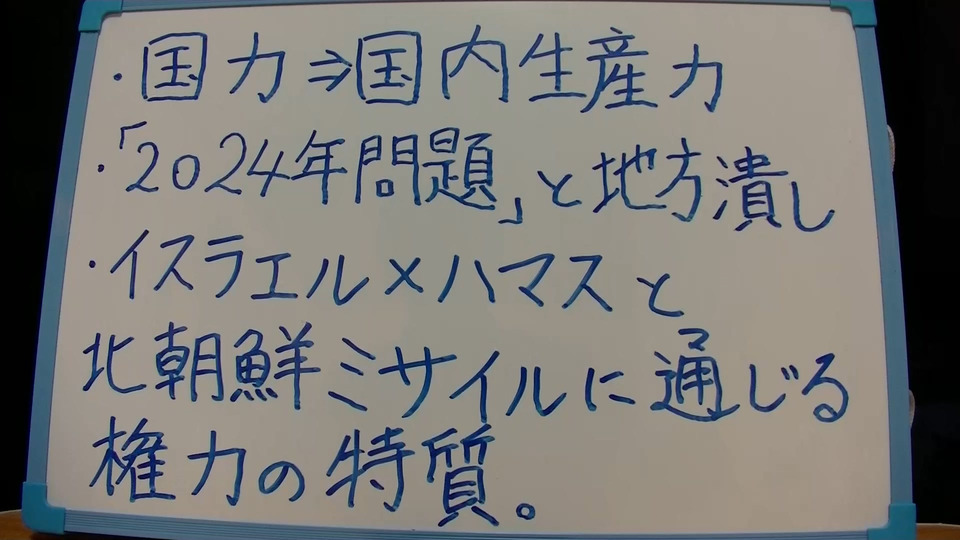 ・国力⇒国内生産力
・「2024年問題」と地方潰し
・イスラエル×ハマスと
北朝鮮ミサイルに通じる
権力の特質。